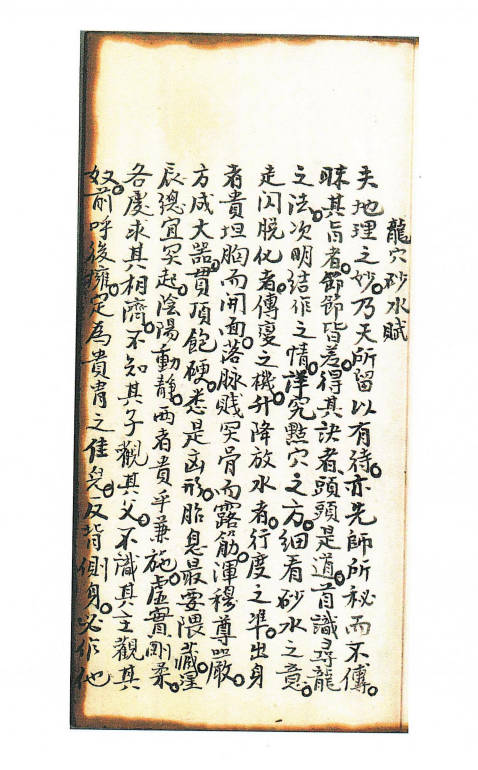 龍穴砂水賦
夫地理之妙。乃天所留以有待。亦先師所秘而不傳。
昧其旨者。節節皆差。得其訣者。頭頭是道。首識尋龍
之法。次明結作之情。詳究點穴之方。細看砂水之意。
走閃脱化者。傳變之機。升降放水者。行度之準。出身
者貴坦胸而開面。落脉賤突骨而露筋。渾穆尊嚴。
方成大器。貫頂飽硬。悉是凶形。胎息最要隈藏。湦
辰總宜突起。陰陽動靜。两者貴乎兼施。虛實剛柔。
各處求其相濟。不知其子觀其父。不識其主觀其
奴。前呼後擁。定為貴胄之佳兒。反背側身。必作他